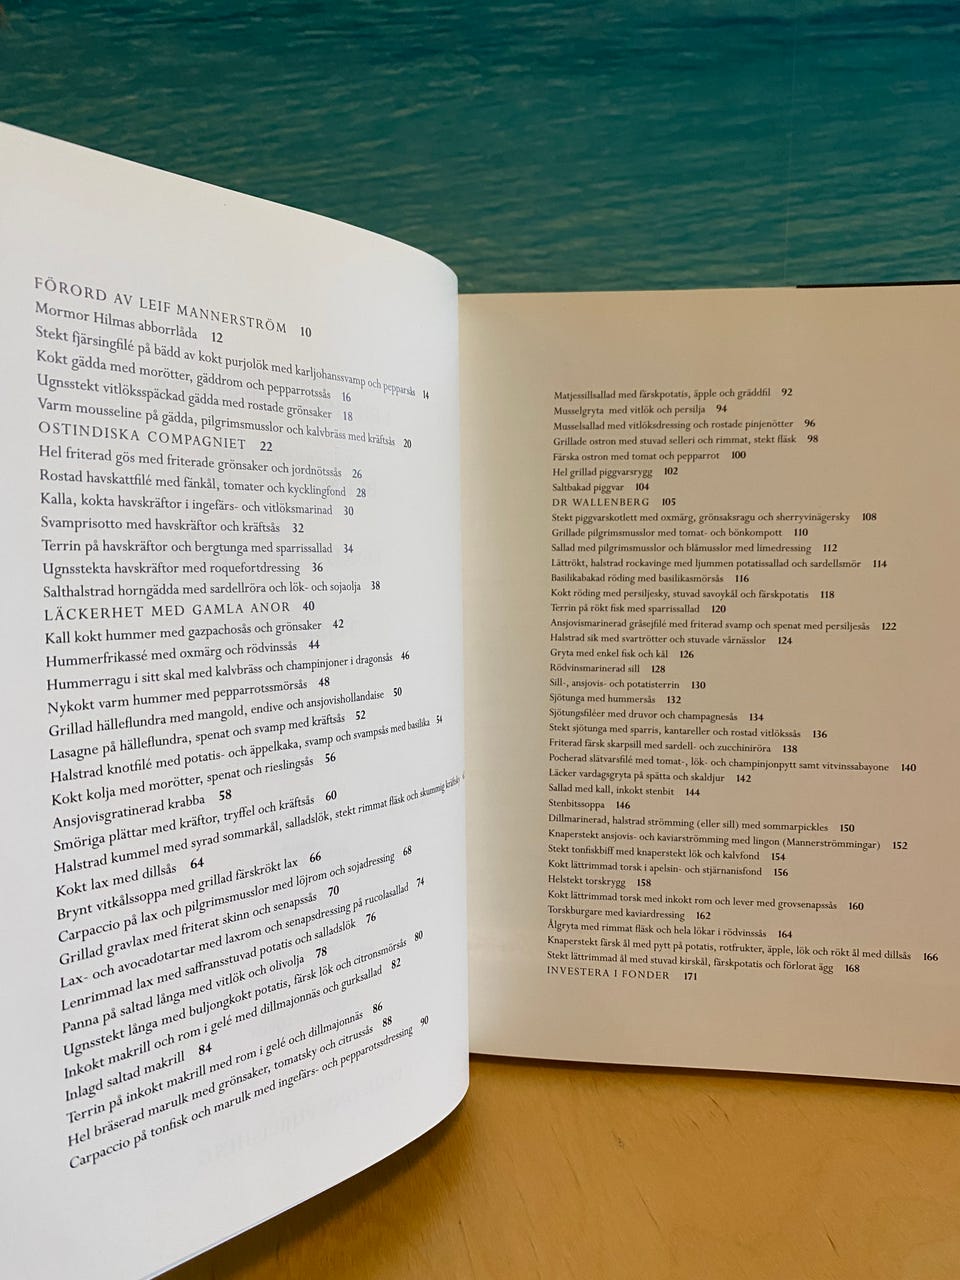 FÖRORD AV LEIF MANNERSTRÖM 10
Mormor Hilmas abborrlåda 12
Stekt fjärsingfilé på bädd av kokt purjolök med karljohanssvamp och pepparsås 14
Kokt gädda med morötter, gäddrom och pepparrotssås 16
Ugnsstekt vitlöksspäckad gädda med rostade grönsaker 18
Varm mousseline på gädda, pilgrimsmusslor och kalvbräss med kräftsås 20
OSTINDISKA COMPAGNIET 22
Hel friterad gös med friterade grönsaker och jordnötssås 26
Rostad havskattfilé med fänkål, tomater och kycklingfond 28
Kalla, kokta havskräftor i ingefärs- och vitlöksmarinad 30
Svamprisotto med havskräftor och kräftsås 32
Terrin på havskräftor och bergtunga med sparrissallad 34
Ugnsstekta havskräftor med roquefortdressing 36
Salthalstrad horngädda med sardellröra och lök- och sojaolja 38
LÄCKERHET MED GAMLA ANOR 40
Kall kokt hummer med gazpachosås och grönsaker 42
Hummerfrikassé med oxmärg och rödvinssås 44
Hummerragu i sitt skal med kalvbräss och champinjoner i dragonsås 46
Nykokt varm hummer med pepparrotssmörsås 48
Grillad hälleflundra med mangold, endive och ansjovishollandaise 50
Lasagne på hälleflundra, spenat och svamp med kräftsås 52
Halstrad knotfilé med potatis- och äppelkaka, svamp och svampsås med basilika 54
Kokt kolja med morötter, spenat och rieslingsås 56
Ansjovisgratinerad krabba 58
Smöriga plättar med kräftor, tryffel och kräftsås 60
Halstrad kummel med syrad sommarkål, salladslök, stekt rimmat fläsk och skummig kräftsky
Kokt lax med dillsås 64
Brynt vitkålssoppa med grillad färskrökt lax 66
Carpaccio på lax och pilgrimsmusslor med löjrom och sojadressing 68
Grillad gravlax med friterat skinn och senapssås 70
Lax- och avocadotartar med laxrom och senapsdressing på rucolasallad 74
Lenrimmad lax med saffransstuvad potatis och salladslök 76
Panna på saltad långa med vitlök och olivolja 78
Ugnsstekt långa med buljongkokt potatis, färsk lök och citronsmörsås 80
Inkokt makrill och rom i gelé med dillmajonnäs och gurksallad 82
Inlagd saltad makrill 84
Terrin på inkokt makrill med rom i gelé och dillmajonnäs 86
Hel bräserad marulk med grönsaker, tomatsky och citrussås 88
Carpaccio på tonfisk och marulk med ingefärs- och pepparotssdressing 90
Matjessillsallad med färskpotatis, äpple och gräddfil 92
Musselgryta med vitlök och persilja 94
Musselsallad med vitlöksdressing och rostade pinjenötter 96
Grillade ostron med stuvad selleri och rimmat, stekt fläsk 98
Färska ostron med tomat och pepparrot 100
Hel grillad piggvarsrygg 102
Saltbakad piggvar 104
DR WALLENBERG 105
Stekt piggvarskotlett med oxmärg, grönsaksragu och sherryvinägersky 108
Grillade pilgrimsmusslor med tomat- och bönkompott 110
Sallad med pilgrimsmusslor och blåmusslor med limedressing 112
Lättrökt, halstrad rockavinge med ljummen potatissallad och sardellsmör 114
Basilikabakad röding med basilikasmörsås 116
Kokt röding med persiljesky, stuvad savoykål och färskpotatis 118
Terrin på rökt fisk med sparrissallad 120
Ansjovismarinerad gråsejfilé med friterad svamp och spenat med persiljesås 122
Halstrad sik med svartrötter och stuvade vårnässlor 124
Gryta med enkel fisk och kål 126
Rödvinsmarinerad sill 128
Sill-, ansjovis- och potatisterrin 130
Sjötunga med hummersås 132
Sjötungsfiléer med druvor och champagnesås 134
Stekt sjötunga med sparris, kantareller och rostad vitlökssås 136
Friterad färsk skarpsill med sardell- och zucchiniröra 138
Pocherad slätvarsfilé med tomat-, lök- och champinjonpytt samt vitvinssabayone 140
Läcker vardagsgryta på spätta och skaldjur 142
Sallad med kall, inkokt stenbit 144
Stenbitssoppa 146
Dillmarinerad, halstrad strömming (eller sill) med sommarpickles 150
Knaperstekt ansjovis- och kaviarströmming med lingon (Mannerströmmingar) 152
Stekt tonfiskbiff med knaperstekt lök och kalvfond 154
Kokt lättrimmad torsk i apelsin- och stjärnanisfond 156
Helstekt torskrygg 158
Kokt lättrimmad torsk med inkokt rom och lever med grovsenapssås 160
Torskburgare med kaviardressing 162
Ålgryta med rimmat fläsk och hela lökar i rödvinssås 164
Knaperstekt färsk ål med pytt på potatis, rotfrukter, äpple, lök och rökt ål med dillsås 166
Stekt lättrimmad ål med stuvad kirskål, färskpotatis och förlorat ägg 168
INVESTERA I FONDER 171